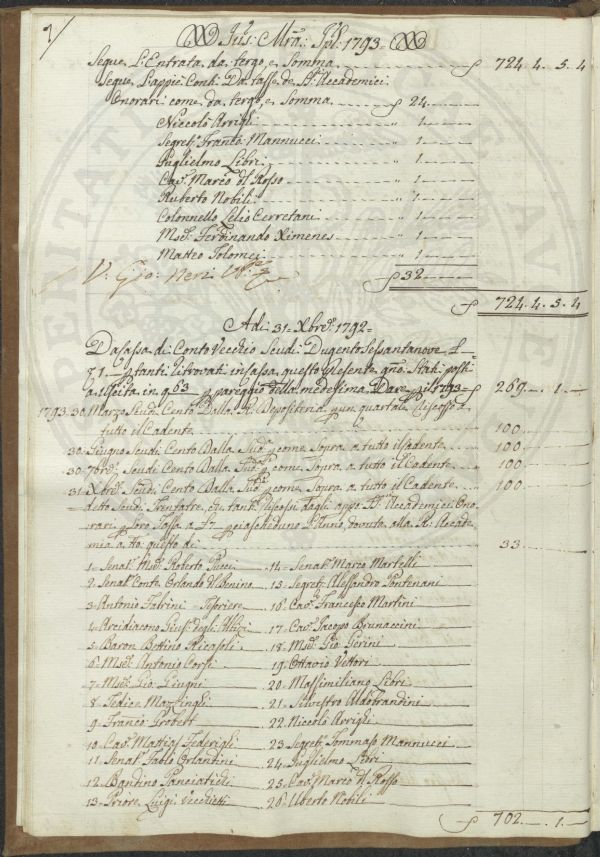 7
Jus: Mra: Spl: 1793
Segue L'Entrata da tergo, e Somma 724. 4. 5. 4
Segue Lappie: Conti: Da tasse de SS.ri Accademici
Onorari come da tergo, e Somma 24
Niccolò Arrighi 1
Segret.o Franco Mannucci 1
Guglielmo Libri 1
Cav.e Marco del Rosso 1
Ruberto Nobili 1
Colonnello Lelio Cerretani 1
Msé: Ferdinando Ximenes 1
Matteo Tolomei 1
V: Gio: Neri 32
724. 4. 5. 4
Adi: 31 = Xbre: 1792 =
Da Cassa di Conto Vecchio Scudi: Dugento Sessantanove L
1 tanti litrovati in Cassa questo presente gno: Stati posti
a Uscita in q 63 pareggio della medessima, Dare p il 1793 269. 1
1793. 30 Marzo Scudi Cento Dalla R: Depositeria p un quartale Riscosso a
tutto il Cadente 100
30. Giugno Scudi Cento Dalla Sud.a come Sopra a tutto il Cadente 100
30. 7bre: Scudi Cento Dalla Sud.a come Sopra a tutto il Cadente 100
31. Xbre: Scudi Cento Dalla Sud.a come Sopra a tutto il Cadente 100
detto Scudi Trentatre, tanti riscossi dagli appo: SS.ri Accademici Ono
rari p loro Tassa a 7 p ciascheduno L'Anno, dovuta alla R: Accade
mia a tto: questo dì 33
1 = Senat: Msé: Roberto Pucci 14 = Senat: Marco Martelli
2. Senat: Conte Orlando del Benino 15 = Segret: Alessandro Pontenani
3. Antonio Fabrini = Tesoriere 16. Cav.e Francesco Martini
4. Arcidiacono Giuse: degli Albizi 17. Cav.e Jacopo Brunaccini
5. Baron Bettino Ricasoli 18. Msé: Gio: Gerini
6. Msé: Antonio Corsi 19. Ottavio Vettori
7 = Msé: Gio: Giugni 20. Massimiliano Libri
8. Tedice Mazzinghi 21. Silvestro Aldobrandini
9. Franco Probert 22. Niccolò Arrighi
10. Cav.e Mattias Federighi 23. Segret: Tommaso Mannucci
11. Senat: Fabio Orlandini 24. Guglielmo Libri
12. Bandino Panciatichi 25. Cav.e Marco del Rosso
13. Priore Luigi Vecchietti 26. Uberto Nobili
702. 1